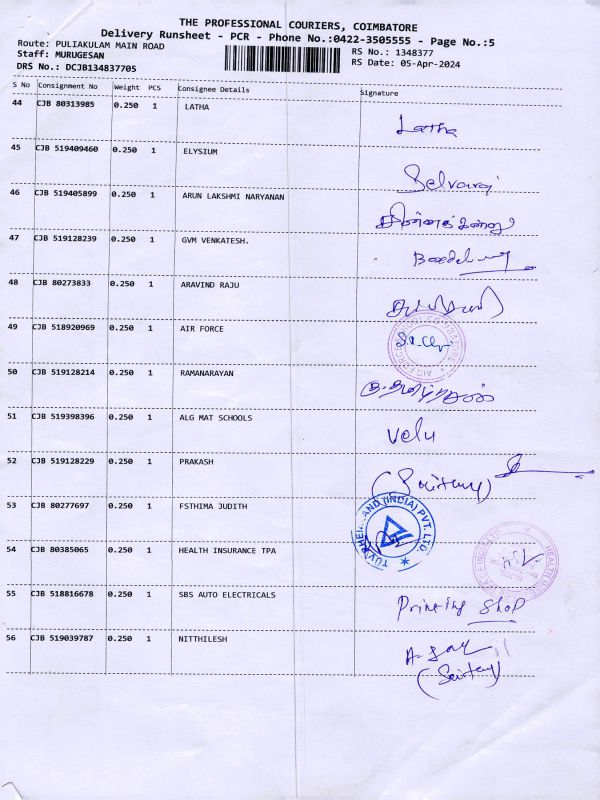 THE PROFESSIONAL COURIERS, COIMBATORE
Delivery Runsheet - PCR - Phone No.:0422-3505555 - Page No.:5
Route: PULIAKULAM MAIN ROAD RS No.: 1348377
Staff: MURUGESAN RS Date: 05-Apr-2024
DRS No.: DCJB134837705
S No Consignment No Weight PCS Consignee Details Signature
44 CJB 80313985 0.250 1 LATHA
Latha
45 CJB 519409460 0.250 1 ELYSIUM
Selvaraj
46 CJB 519405899 0.250 1 ARUN LAKSHMI NARYANAN
47 CJB 519128239 0.250 1 GVM VENKATESH.
48 CJB 80273833 0.250 1 ARAVIND RAJU
49 CJB 518920969 0.250 1 AIR FORCE
50 CJB 519128214 0.250 1 RAMANARAYAN
51 CJB 519398396 0.250 1 ALG MAT SCHOOLS
Velu
52 CJB 519128229 0.250 1 PRAKASH
53 CJB 80277697 0.250 1 FSTHIMA JUDITH
(INDIA) PVT. LTD.
54 CJB 80385065 0.250 1 HEALTH INSURANCE TPA
55 CJB 518816678 0.250 1 SBS AUTO ELECTRICALS
Printing Shop
56 CJB 519039787 0.250 1 NITTHILESH